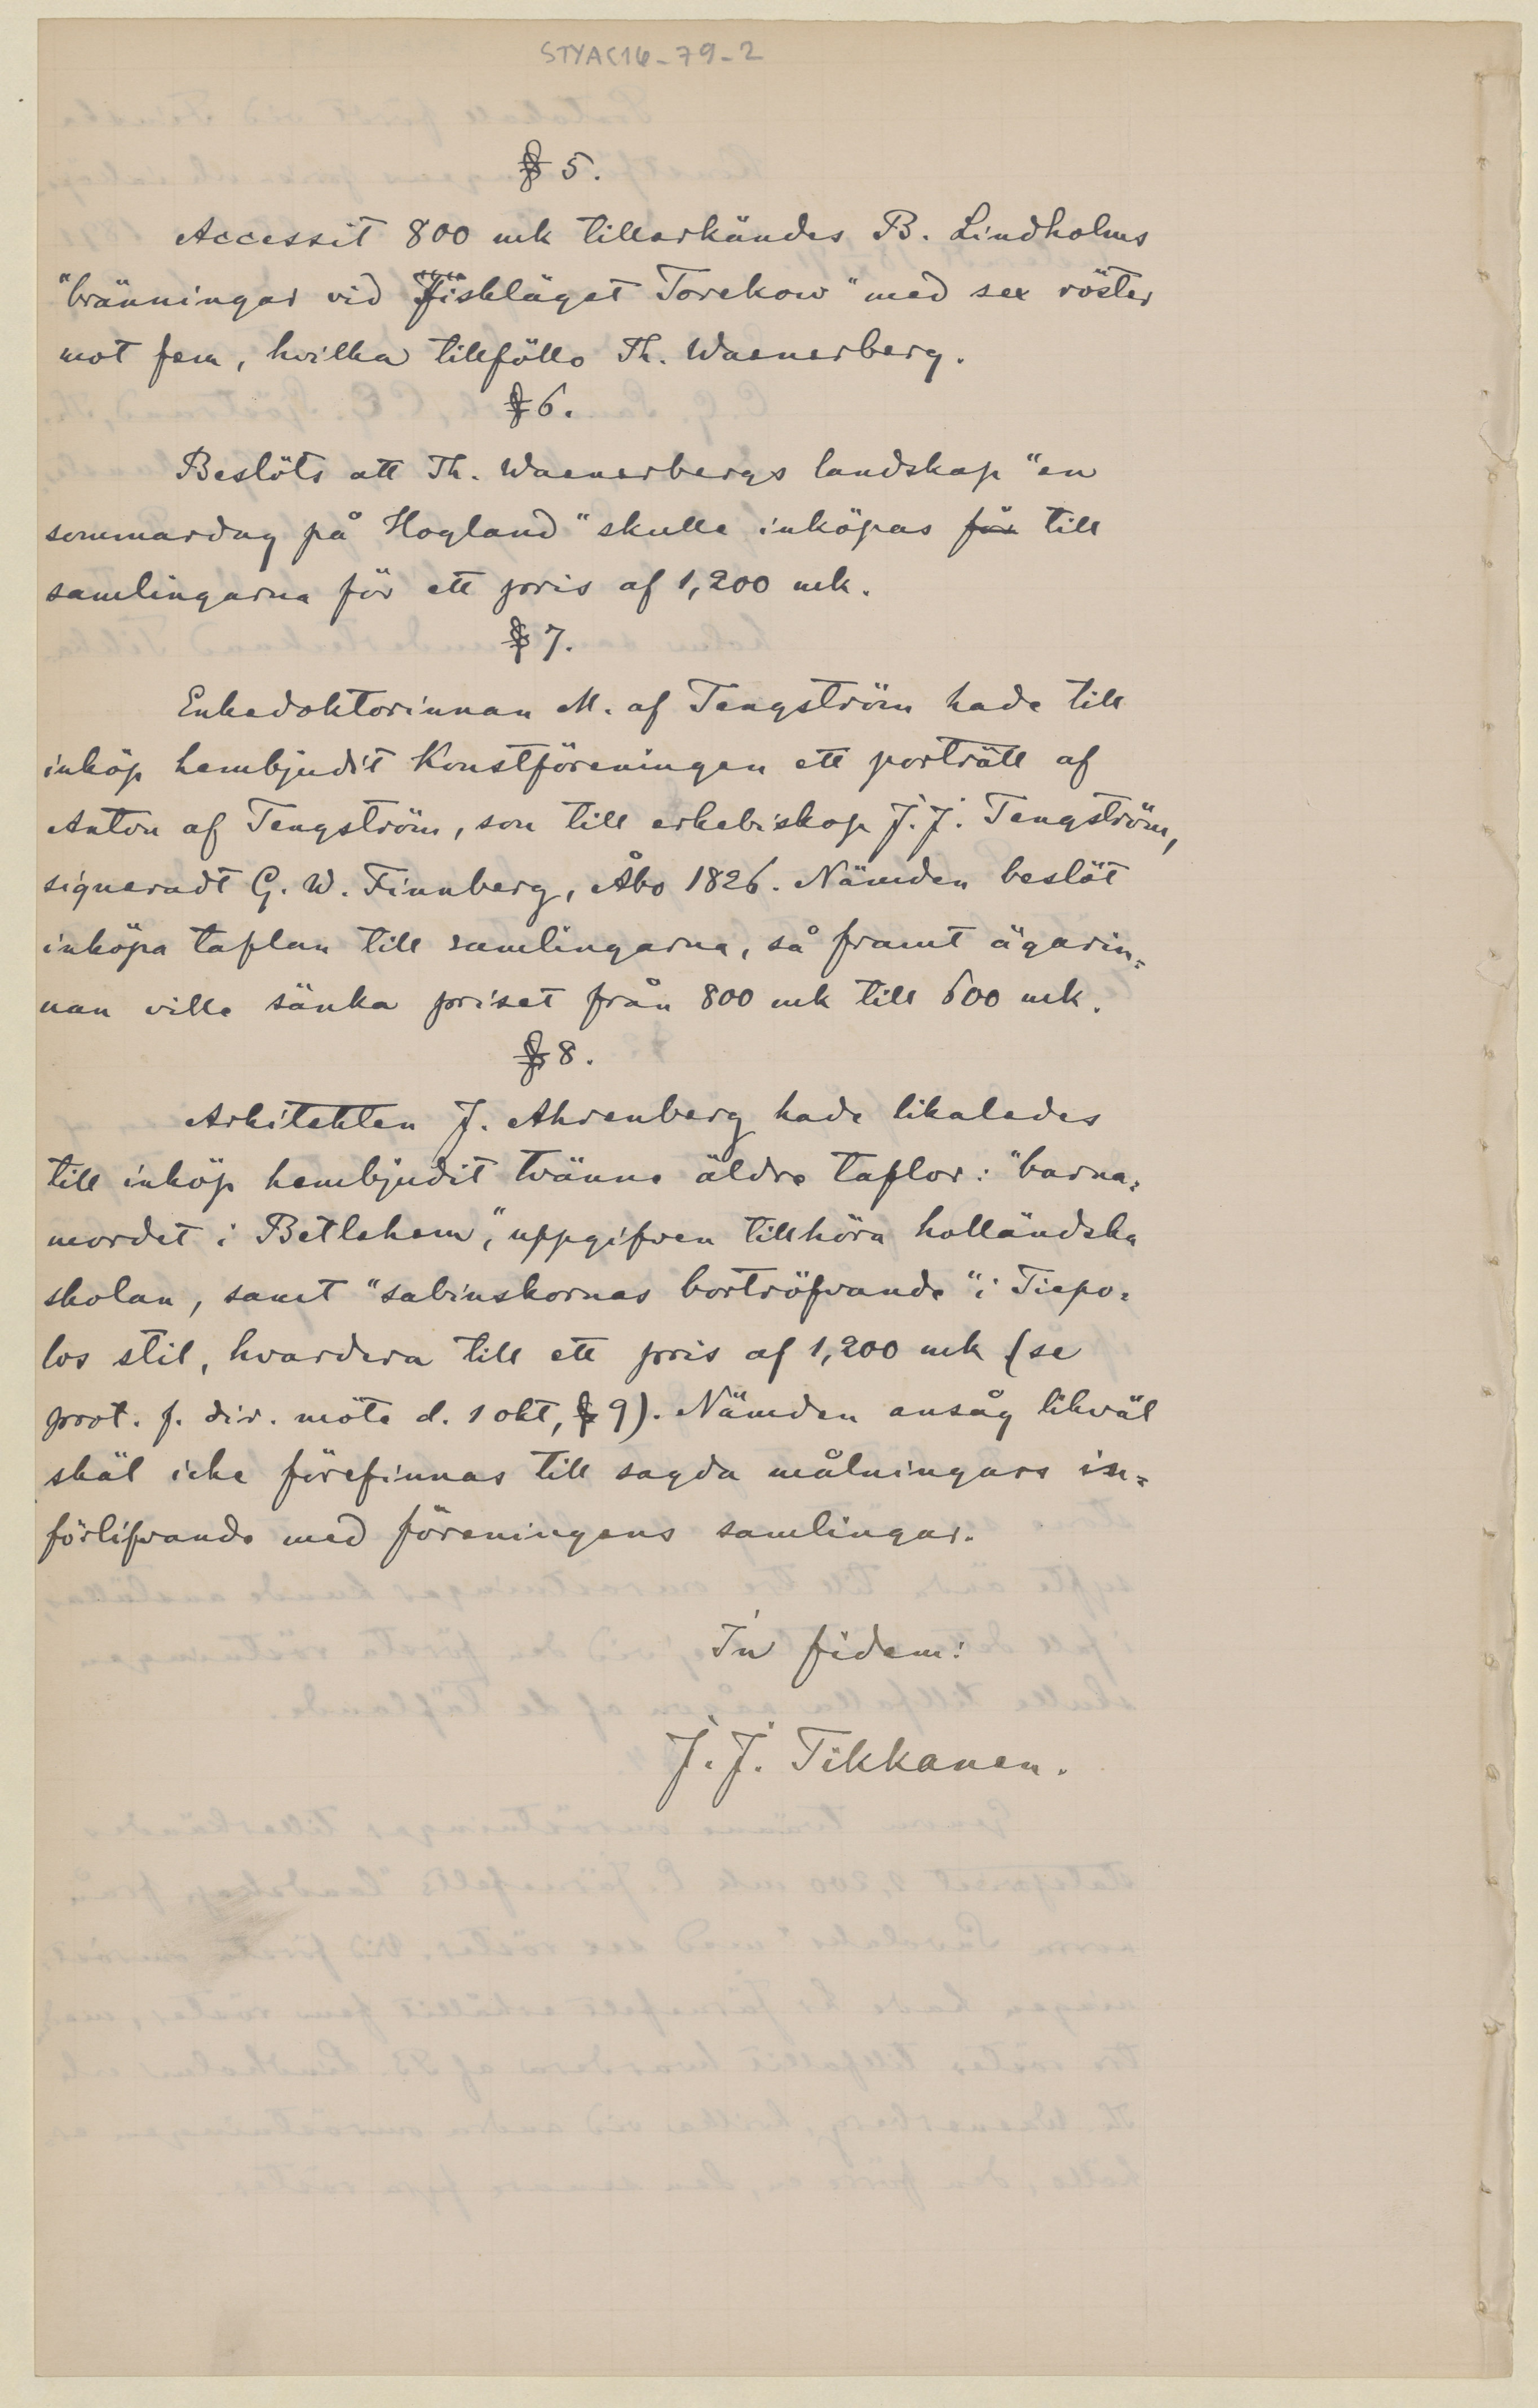 STYAC16-79-2
§ 5.
Accessit 800 mk tillerkändes B. Lindholms
"bränningar vid fiskläget Torekow" med sex röster
mot fem, hvilka tillföllo Th. Waenerberg.
§ 6.
Beslöts att Th. Waenerbergs landskap "en
sommardag på Hogland" skulle inköpas för till
samlingarna för ett pris af 1,200 mk.
§ 7.
Enkedoktorinnan M. af Tengström hade till
inköp hembjudit Konstföreningen ett porträtt af
Anton af Tengström, son till erkebiskop J. J. Tengström,
signeradt G. W. Finnberg, Åbo 1826. Nämden beslöt
inköpa taflan till samlingarna, så framt ägarin=
nan ville sänka priset från 800 mk till 600 mk.
§ 8.
Arkitekten J. Ahrenberg hade likaledes
till inköp hembjudit tvänne äldre taflor: "barna=
mordet i Betlehem", uppgifven tillhöra holländska
skolan, samt "sabinskornas bortröfvande" i Tiepo=
los stil, hvardera till ett pris af 1,200 mk (se
prot. f. dir. möte d. 1 okt, § 9). Nämden ansåg likväl
skäl icke förefinnas till sagda målningars in=
förlifvande med föreningens samlingar.
In fidem:
J. J. Tikkanen.